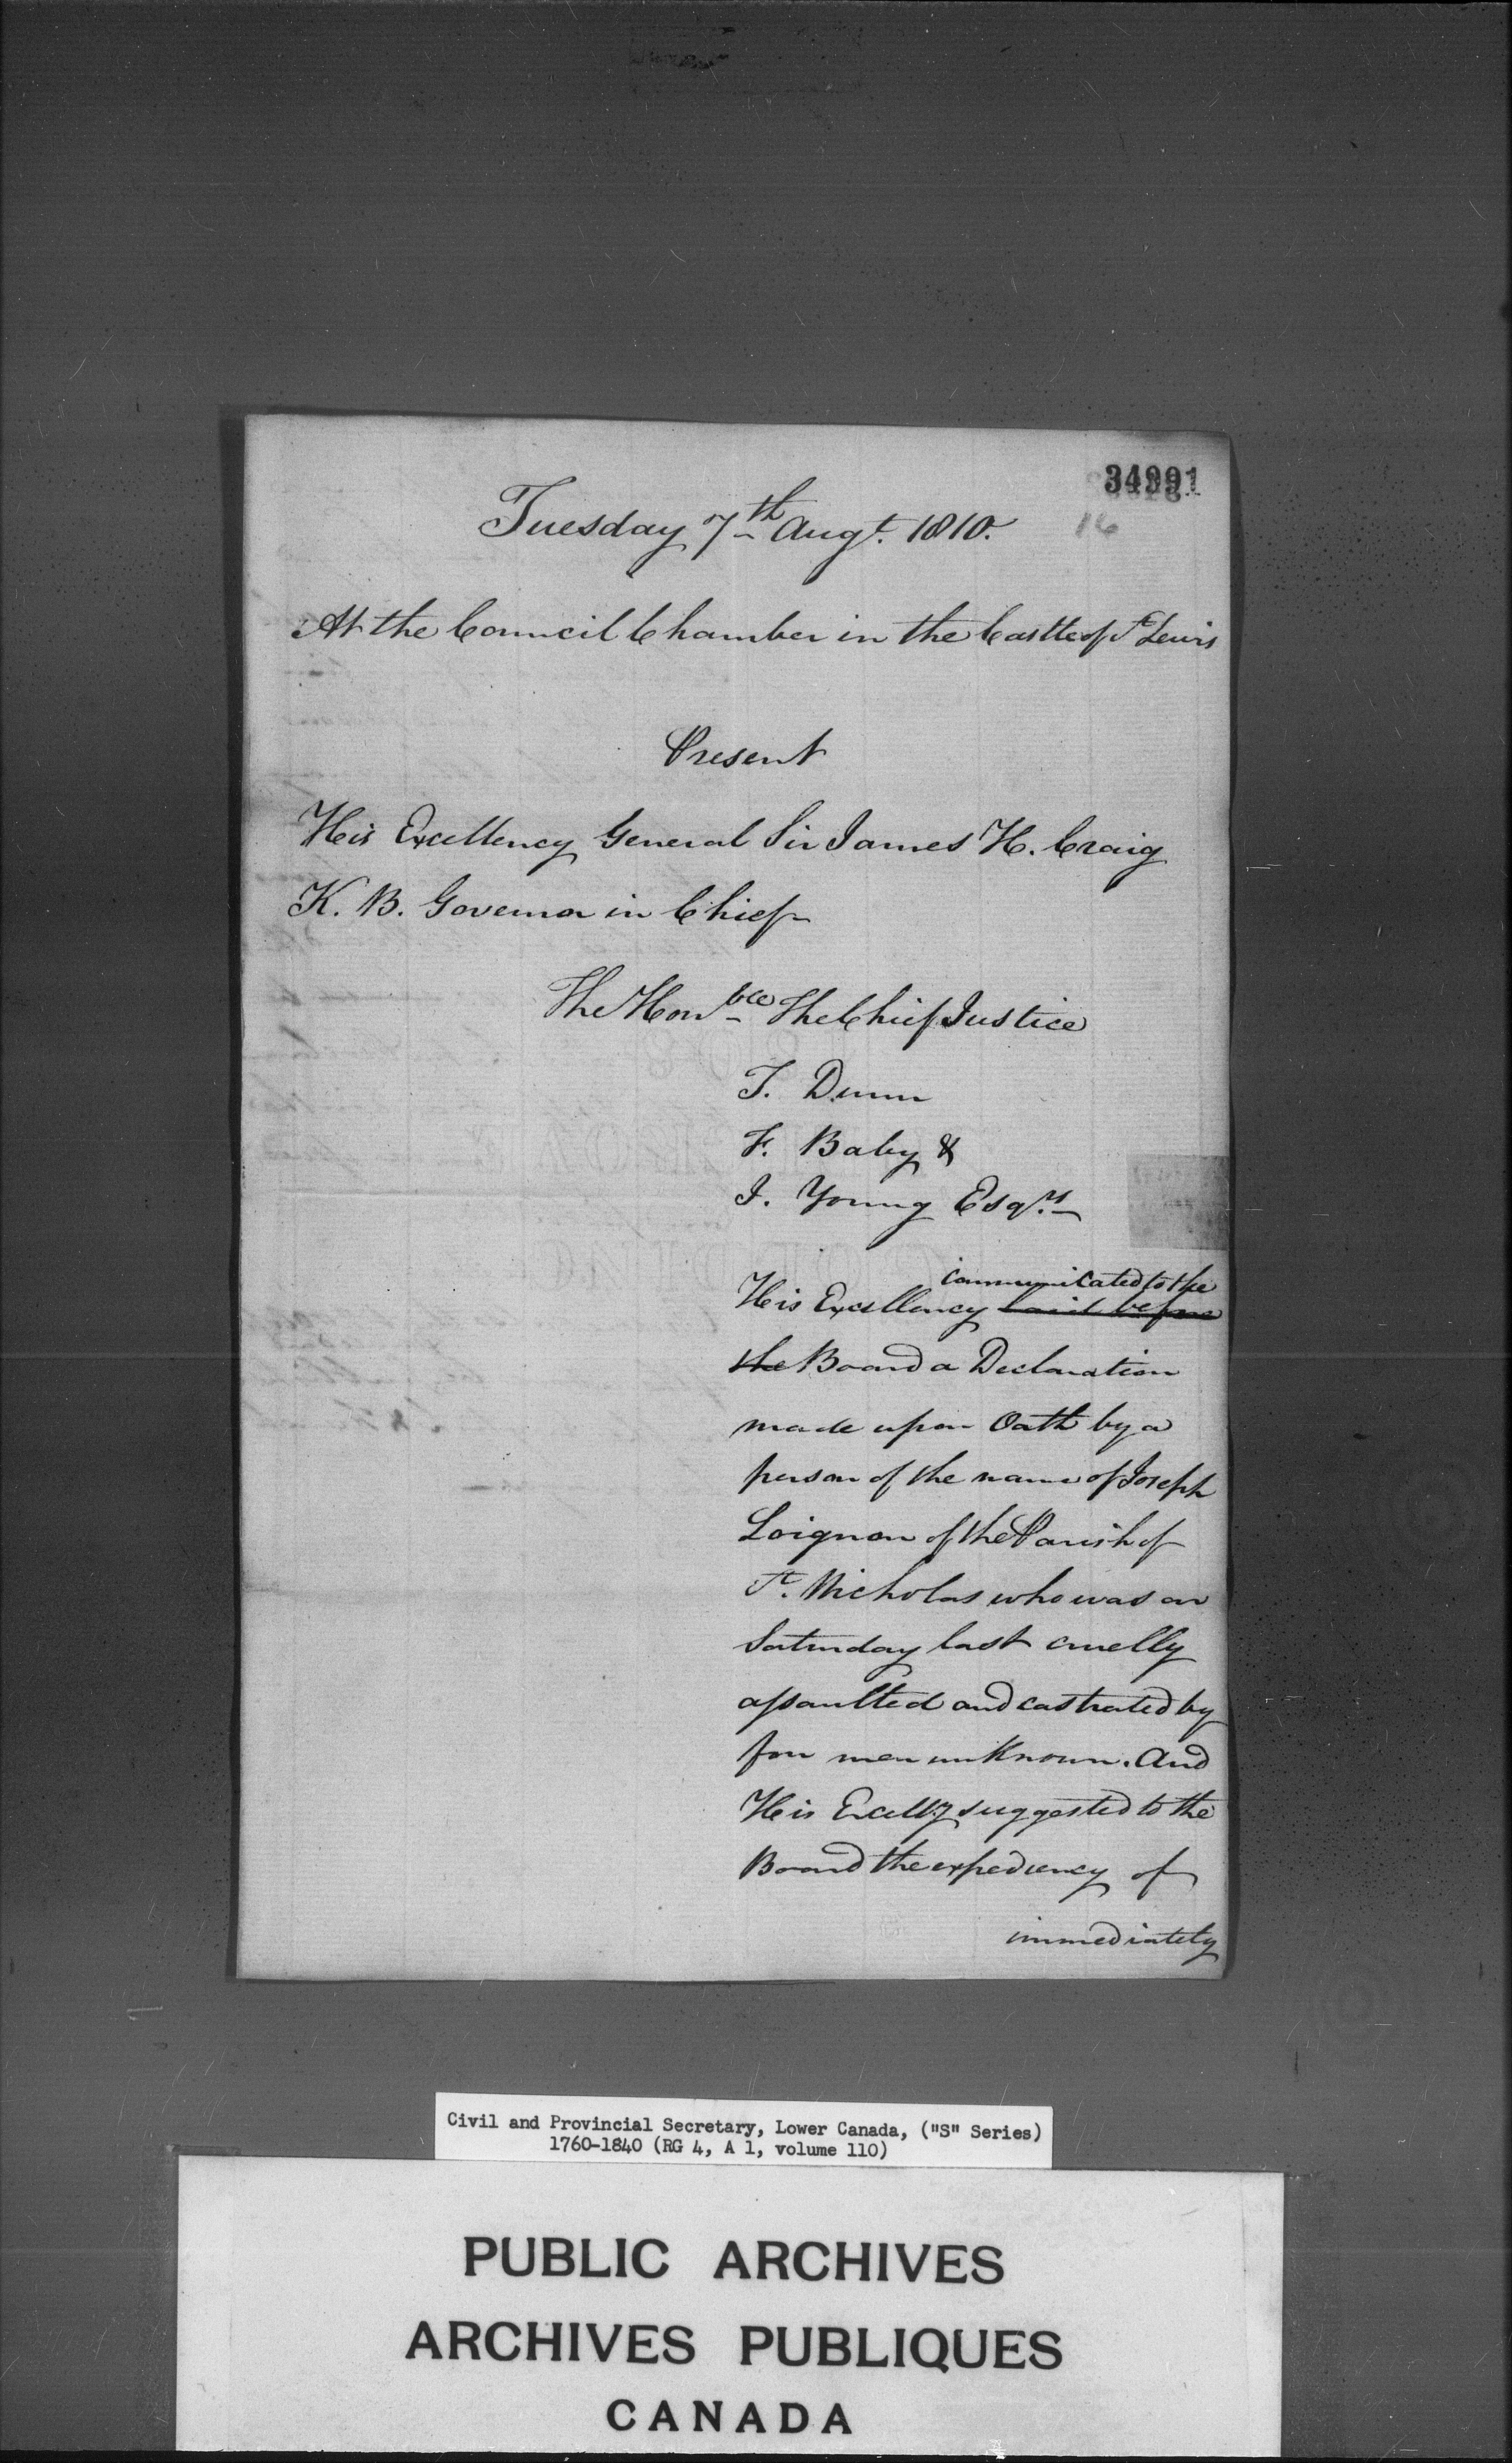 34991
16
Tuesday 7th Augt. 1810.
At the Council Chamber in the Castle of St Lewis
Present
His Excellency General Sir James H. Craig
K. B. Governor in Chief
The Honble The Chief Justice
T. Dunn
F. Baby &
J. Young Esqrs
communicated to the
His Excellency laid before
the Board a Declaration
made upon Oath by a
person of the name of Joseph
Loignon of the Parish of
St. Nicholas who was on
Saturday last cruelly
assaulted and castrated by
four men unknown. And
His Excelly suggested to the
Board the expediency of
immediately
Civil and Provincial Secretary, Lower Canada, ("S" Series)
1760-1840 (RG 4, A 1, volume 110)
PUBLIC ARCHIVES
ARCHIVES PUBLIQUES
CANADA